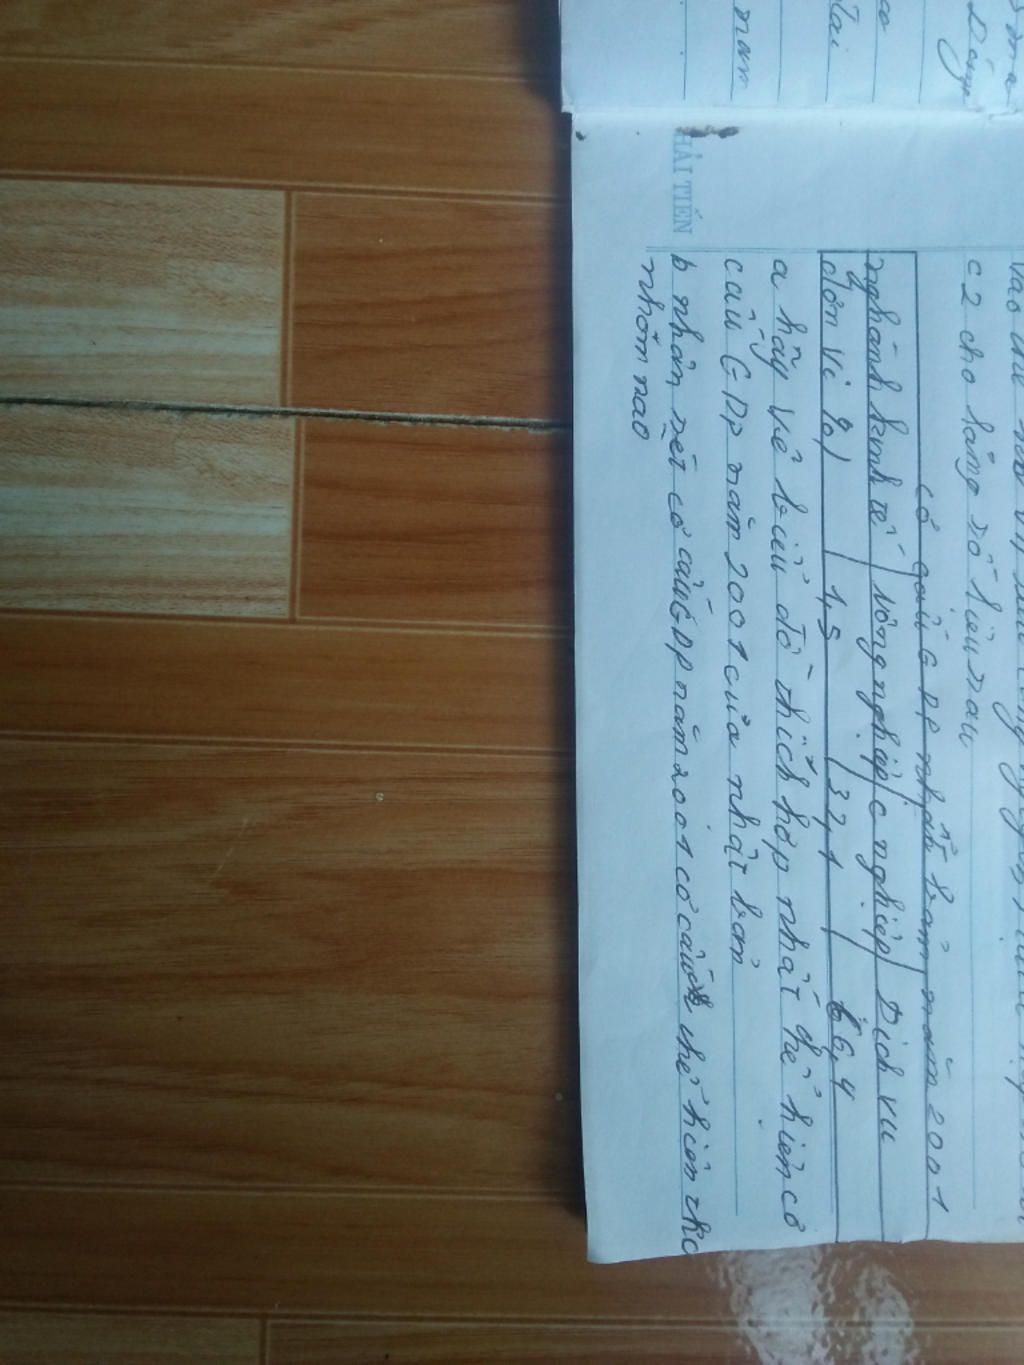 HẢI TIẾN
c2 cho bảng số liệu sau
cơ cấu GDP nhật bản năm 2001
nghành kinh tế | Nông nghiệp | c nghiệp | Dịch vu
đơn vị %) | 1,5 | 32,1 | 66,4
a hãy vẽ biểu đồ thích hợp nhất thể hiện cơ
cấu GDP năm 2001 của nhật bản
b nhận xét cơ cấu GDP năm 2001 cơ cấu thể hiện cho
nhóm nao
nam
Tai
co
Dông